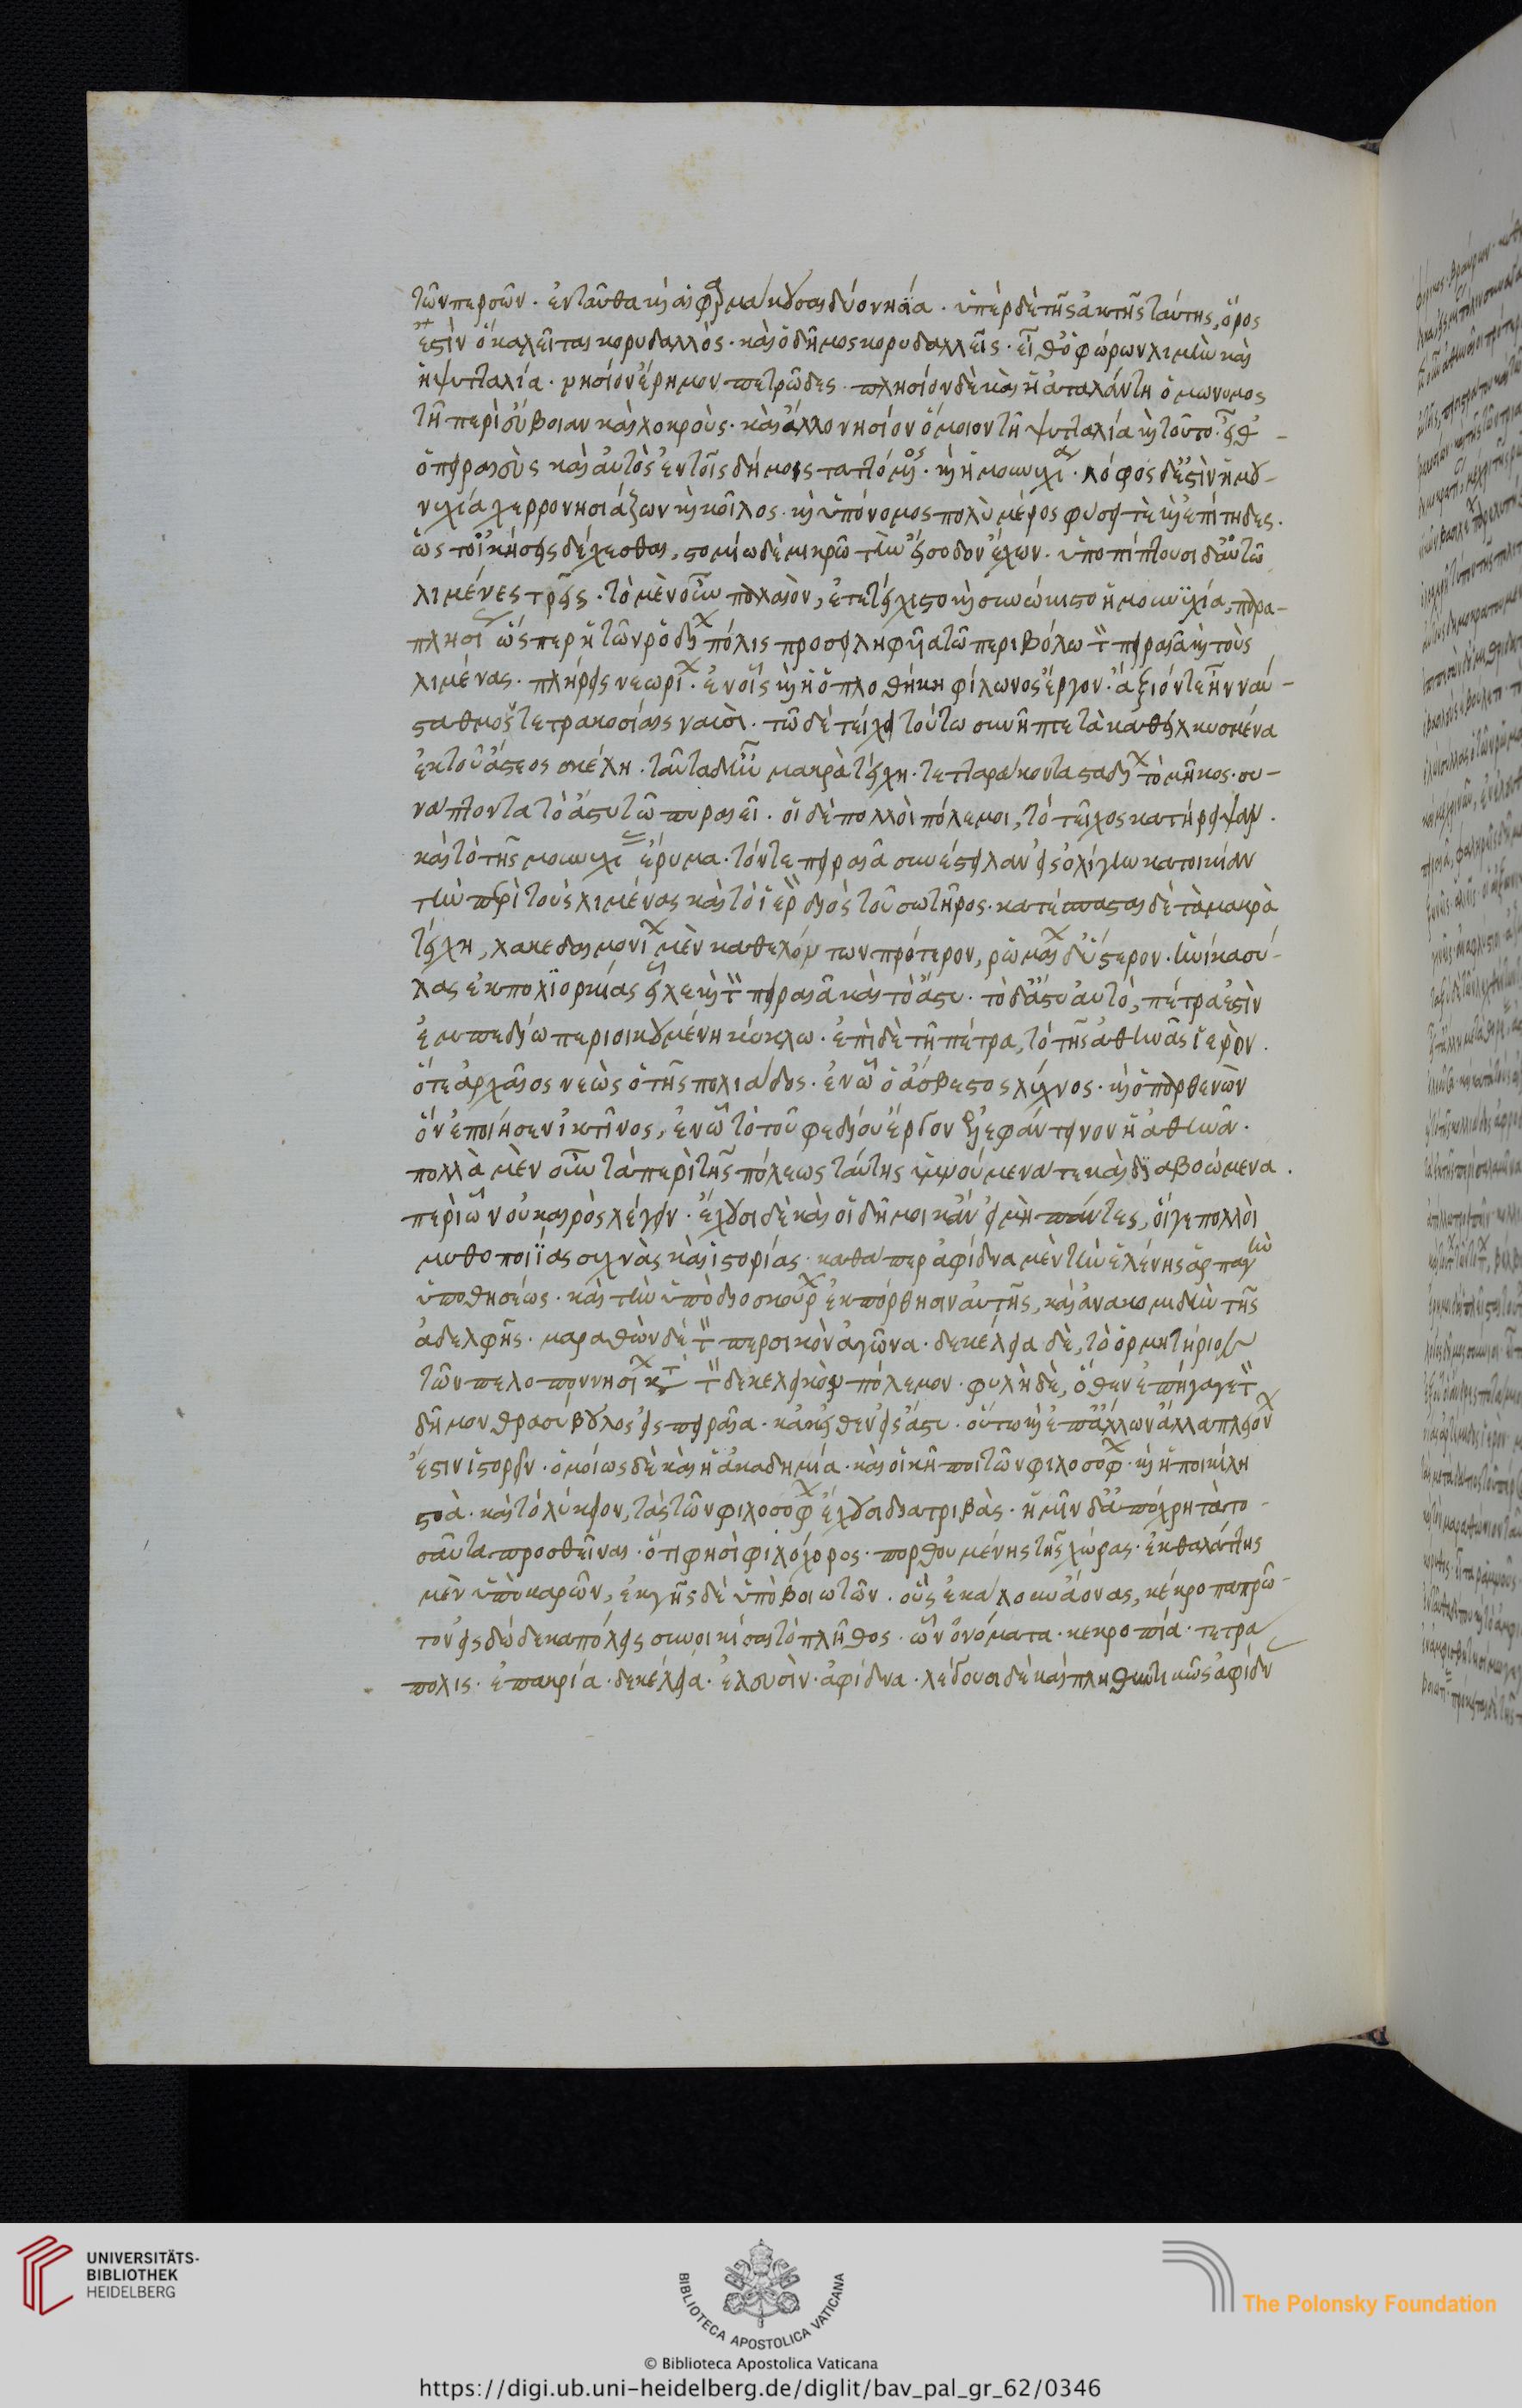 τῶν περσῶν. ἐνταῦθα καὶ αἱ φαρμακοῦσαι δύο νησία. ὑπὲρ δὲ τῆς ἀκτῆς ταύτης, ὄρος
ἐστὶν ὃ καλεῖται κορυδαλλὸς. καὶ ὁ δῆμος κορυδαλλεῖς. εἶθ' ὁ φώρων λιμὴν καὶ
ἡ ψυτταλία. νησίον ἔρημον πετρῶδες. πλησίον δὲ καὶ ἡ ἀταλάντη ὁμώνυμος
τῆ περὶ εὔβοιαν καὶ λοκροὺς. καὶ ἄλλο νησίον ὅμοιον τῆ ψυτταλία καὶ τοῦτο. εἶθ'
ὁ πειραιεὺς καὶ αὐτὸς ἐν τοῖς δήμοις ταττόμενος. καὶ ἡ μουνυχία. λόφος δ' ἐστὶν ἡ μου-
νυχία χερρονησιάζων καὶ κοῖλος. καὶ ὑπόνομος πολὺ μέρος φύσει τε καὶ ἐπίτηδες.
ὥστ' οἰκήσεις δέχεσθαι, στομίω δὲ μικρῶ τὴν εἴσοδον ἔχων. ὑποπίπτουσι δ' αὐτῶ
λιμένες τρεῖς. τὸ μὲν οὖν παλαιὸν, ἐτετείχιστο καὶ συνώκιστο ἡ μουνυχία, παρα-
πλησίως ὥσπερ ἡ τῶν ροδίων πόλις προσειληφυῖα τῶ περιβόλω τὸν πειραιᾶ καὶ τοὺς
λιμένας. πλήρεις νεωρίων. ἐν οἷς καὶ ἡ ὁπλοθήκη φίλωνος ἔργον. ἄξιόν τε ἦν ναύ-
σταθμον τετρακοσίαις ναυσὶ. τῶ δὲ τείχει τούτω συνῆπτε τὰ καθειλκυσμένα
ἐκ τοῦ ἄστεος σκέλη. ταῦτα δ' ἦν μακρὰ τείχη. τετταράκοντα σταδίων τὸ μῆκος. συ-
νάπτοντα τὸ ἄστυ τῶ πειραιεῖ. οἱ δὲ πολλοὶ πόλεμοι, τὸ τεῖχος κατήρειψαν.
καὶ τὸ τῆς μουνυχίας ἔρυμα. τόν τε πειραιᾶ συνέστειλαν εἰς ὀλίγην κατοικίαν
τὴν περὶ τοὺς λιμένας καὶ τὸ ἱερὸν διὸς τοῦ σωτῆρος. κατέσπασται δὲ τὰ μακρὰ
τείχη, λακεδαιμονίων μὲν καθελόντων πρότερον, ρωμαίων δ' ὕστερον. ἡνίκα σύ-
λας ἐκ πολιορκίας εἷλε καὶ τὸν πειραιᾶ καὶ τὸ ἄστυ. τὸ δ' ἄστυ αὐτὸ, πέτρα ἐστὶν
ἐν πεδίω περιοικουμένη κύκλω. ἐπὶ δὲ τῆ πέτρα, τὸ τῆς ἀθηνᾶς ἱερὸν.
ὅ τε ἀρχαῖος νεὼς ὁ τῆς πολιάδος. ἐν ὧ ὁ ἄσβεστος λύχνος. καὶ ὁ παρθενὼν
ὃν ἐποίησεν ἰκτῖνος, ἐν ὧ τὸ τοῦ φειδίου ἔργον ἐλεφάντινον ἡ ἀθηνᾶ.
πολλὰ μὲν οὖν τὰ περὶ τῆς πόλεως ταύτης ὑμνούμενά τε καὶ διαβοώμενα.
περὶ ὧν οὐ καιρὸς λέγειν. ἔχουσι δὲ καὶ οἱ δῆμοι κἂν εἰ μὴ πάντες, οἵ γε πολλοὶ
μυθοποιΐας συχνὰς καὶ ἱστορίας. καθάπερ ἀφίδνα μὲν τὴν ἑλένης ἁρπαγὴν
ὑπὸ θησέως. καὶ τὴν ὑπὸ διοσκούρων ἐκπόρθησιν αὐτῆς, καὶ ἀνακομιδὴν τῆς
ἀδελφῆς. μαραθὼν δὲ τὸν περσικὸν ἀγῶνα. δεκέλεια δὲ, τὸ ὁρμητήριον
τῶν πελοποννησίων κατὰ τὸν δεκελεικὸν πόλεμον. φυλὴ δὲ, ὅθεν ἐπήγαγε τὸν
δῆμον θρασύβουλος εἰς πειραιᾶ. κἀκεῖθεν εἰς ἄστυ. οὕτω καὶ ἐπ' ἄλλων ἄλλα πλείονα
ἔστιν ἱστορεῖν. ὁμοίως δὲ καὶ ἡ ἀκαδημία. καὶ οἱ κῆποι τῶν φιλοσόφων. καὶ ἡ ποικίλη
στοὰ. καὶ τὸ λύκειον, τὰς τῶν φιλοσόφων ἔχουσι διατριβὰς. ἡμῖν δ' ἀπόχρη τὰ το-
σαῦτα προσθεῖναι. ὅτι φησὶ φιλόχορος. πορθουμένης τῆς χώρας. ἐκ θαλάττης
μὲν ὑπὸ καρῶν, ἐκ γῆς δὲ ὑπὸ βοιωτῶν. οὓς ἐκάλουν ἄονας, κέκροπα πρῶ-
τον εἰς δώδεκα πόλεις συνοικίσαι τὸ πλῆθος. ὧν ὀνόματα. κεκροπία. τετρα
πολις. ἐπακρία. δεκέλεια. ἐλευσὶν. ἀφίδνα. λέγουσι δὲ καὶ πληθυντικῶς ἀφίδν
UNIVERSITÄTS-
BIBLIOTHEK
HEIDELBERG
BIBLIOTECA APOSTOLICA VATICANA
The Polonsky Foundation
© Biblioteca Apostolica Vaticana
https://digi.ub.uni-heidelberg.de/diglit/bav_pal_gr_62/0346